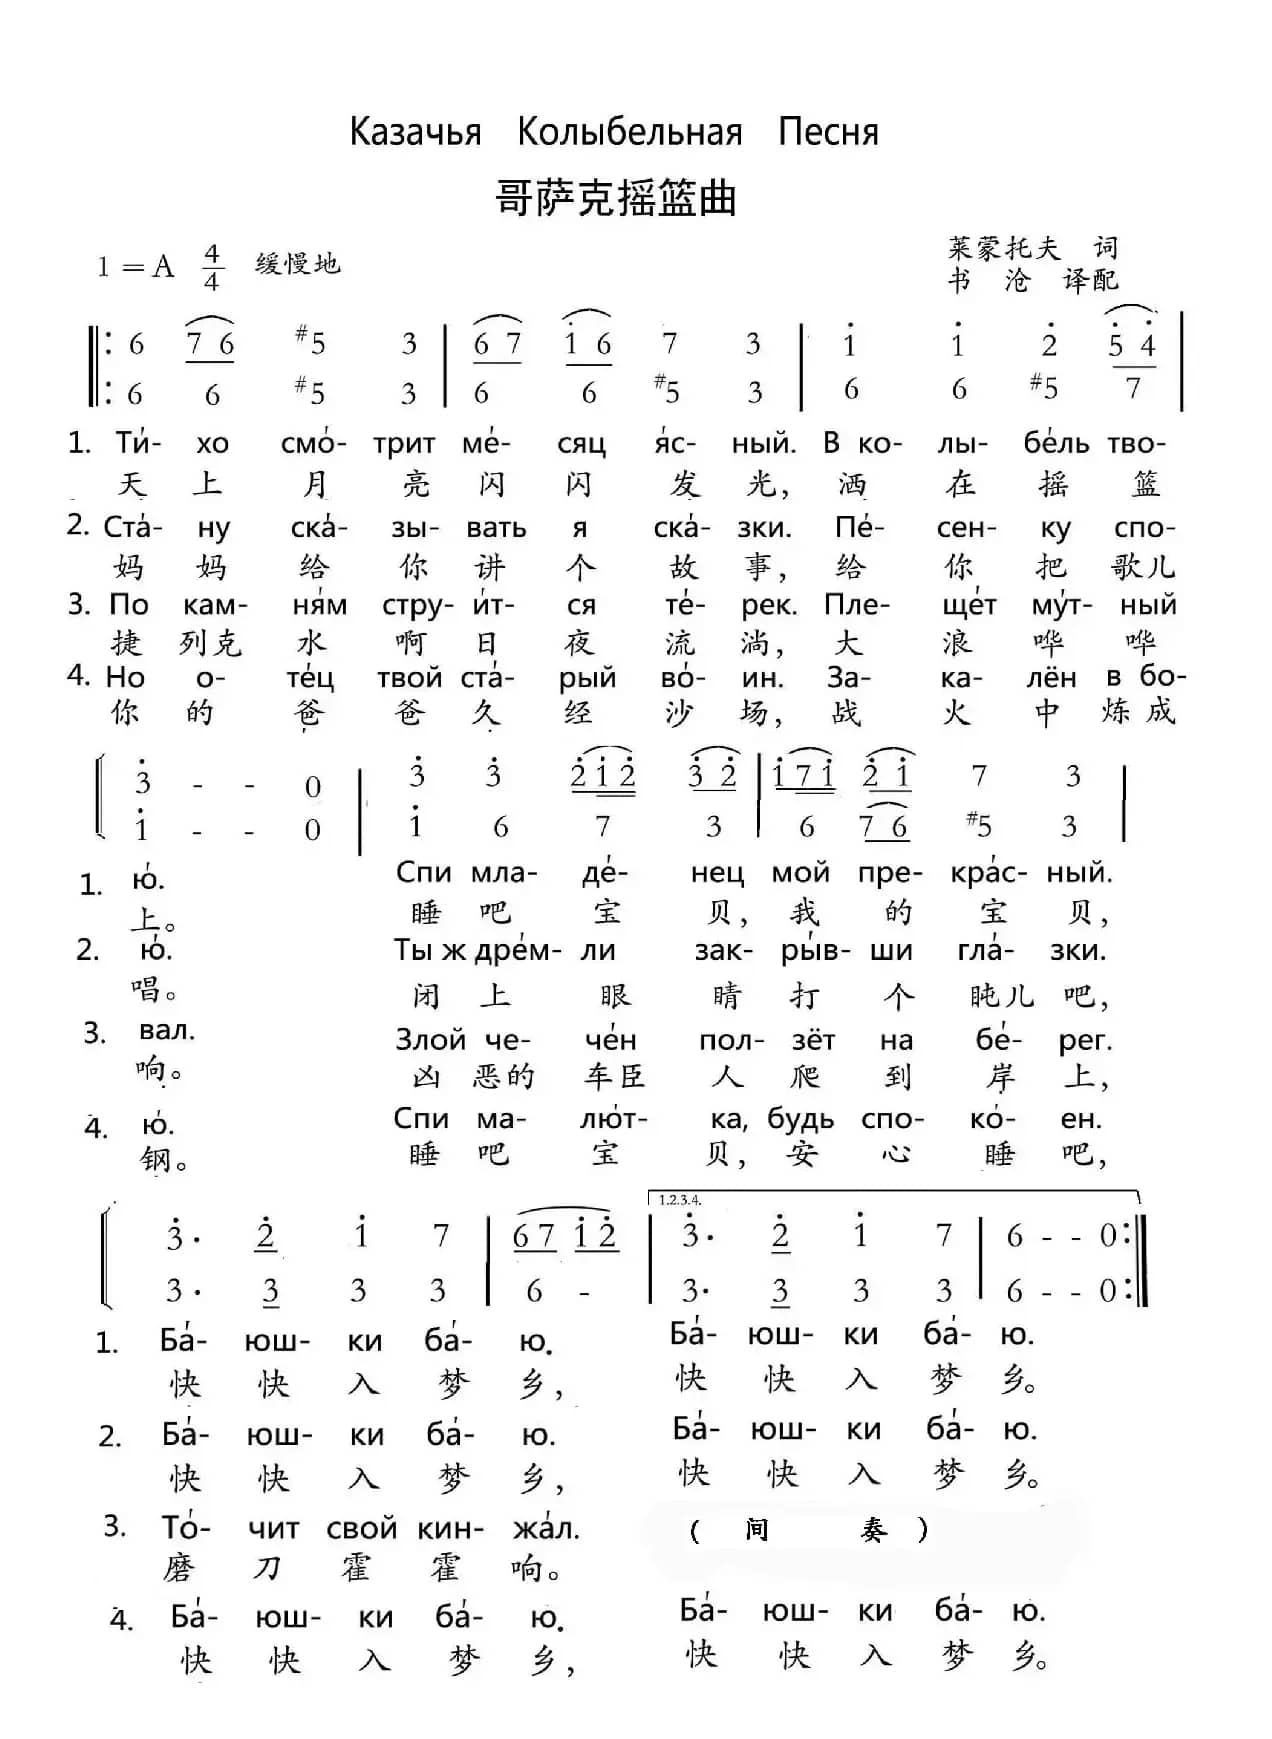 Казачья Колыбельная Песня
哥萨克摇篮曲
1=A 4/4 缓慢地
莱蒙托夫 词
书 沧 译配
6 7 6 #5 3 | 6 7 1 6 7 3 | 1 1 2 5 4 |
6 6 #5 3 6 6 #5 3 6 6 #5 7
1. Ти́- хо смо́- трит ме́- сяц я́с- ный. В ко- лы- бе́ль тво-
天 上 月 亮 闪 闪 发 光, 洒 在 摇 篮
2. Ста́- ну ска́- зы- вать я ска́- зки. Пе́- сен- ку спо-
妈 妈 给 你 讲 个 故 事, 给 你 把 歌儿
3. По кам- ня́м стру- и́т- ся те́- рек. Пле- ще́т му́т- ный
捷 列克 水 啊 日 夜 流 淌, 大 浪 哗 哗
4. Но о- те́ц твой ста́- рый во́- ин. За- ка- лён в бо-
你 的 爸 爸 久 经 沙 场, 战 火 中 炼成
3 - - 0 | 3 3 2 1 2 3 2 | 1 7 1 2 1 7 3 |
1 - - 0 1 6 7 3 6 7 6 #5 3
1. ю́. Спи мла- де́- нец мой пре- кра́с- ный.
上。 睡 吧 宝 贝, 我 的 宝 贝,
2. ю́. Ты ж дре́м- ли зак- ры́в- ши гла́- зки.
唱。 闭 上 眼 睛 打 个 盹儿 吧,
3. вал. Злой че- че́н пол- зёт на бе́- рег.
响。 凶 恶的 车臣 人 爬 到 岸 上,
4. ю́. Спи ма- лю́т- ка, будь спо- ко́- ен.
钢。 睡 吧 宝 贝, 安 心 睡 吧,
1.2.3.4.
3· 2 1 7 | 6 7 1 2 | 3· 2 1 7 | 6 - - 0 :
3· 3 3 3 6 - 3· 3 3 3 6 - - 0 :
1. Ба́- юш- ки ба́- ю. Ба́- юш- ки ба́- ю.
快 快 入 梦 乡, 快 快 入 梦 乡。
2. Ба́- юш- ки ба́- ю. Ба́- юш- ки ба́- ю.
快 快 入 梦 乡, 快 快 入 梦 乡。
3. То́- чит свой кин- жа́л. ( 间 奏 )
磨 刀 霍 霍 响。
4. Ба́- юш- ки ба́- ю. Ба́- юш- ки ба́- ю.
快 快 入 梦 乡, 快 快 入 梦 乡。